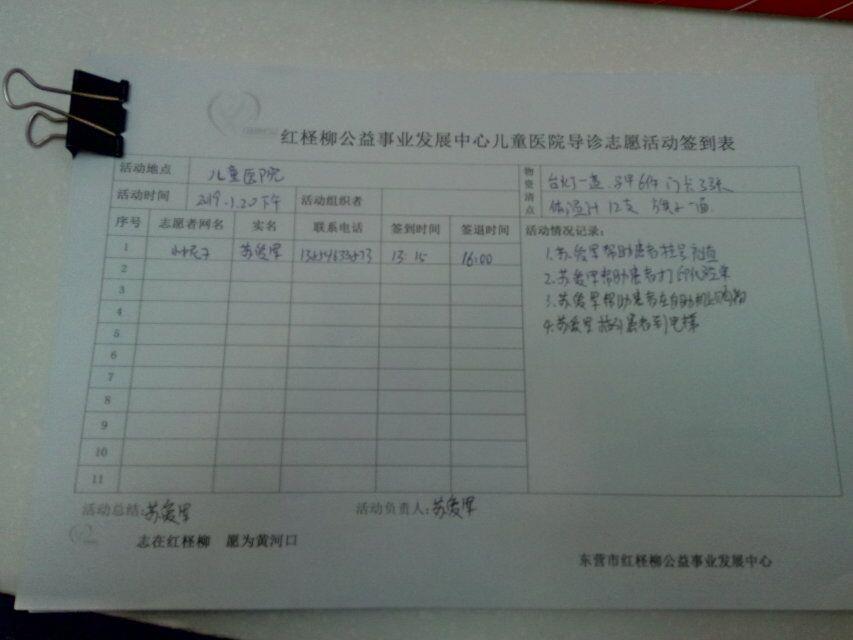 红柽柳公益事业发展中心儿童医院导诊志愿活动签到表
活动地点 儿童医院
物资清点 台灯一盏 马甲6件 门卡3张
体温计12支 旗子一面
活动时间 2019.1.20下午 活动组织者
序号 志愿者网名 实名 联系电话 签到时间 签退时间 活动情况记录:
1 苏爱军 13:15 16:00
1.苏爱军帮助患者挂号充值
2.苏爱军帮助患者打印化验单
3.苏爱军帮助患者在自助机上购物
4.苏爱军指引患者到电梯
2
3
4
5
6
7
8
9
10
11
活动总结:苏爱军 活动负责人:苏爱军
志在红柽柳 愿为黄河口
东营市红柽柳公益事业发展中心